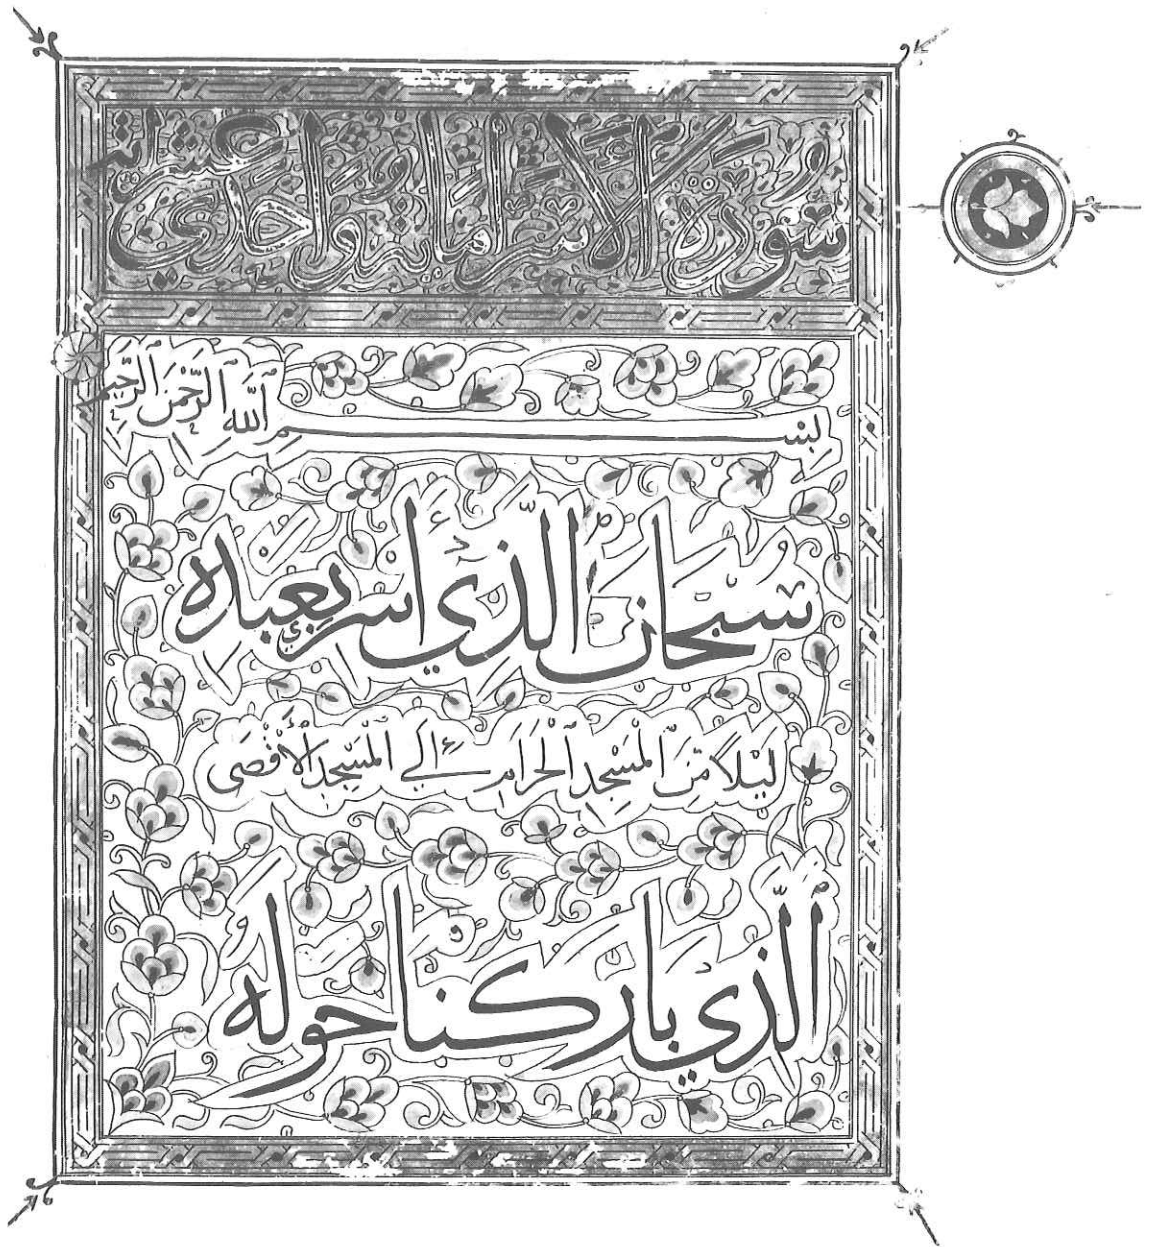 سورة الاسرا مائة واحدى عشر اية
بِسْمِ ٱللَّهِ ٱلرَّحْمَنِ ٱلرَّحِيمِ
سُبْحَانَ ٱلَّذِي أَسْرَى بِعَبْدِهِ
لَيْلًا مِّنَ ٱلْمَسْجِدِ ٱلْحَرَامِ إِلَى ٱلْمَسْجِدِ ٱلْأَقْصَى
ٱلَّذِي بَارَكْنَا حَوْلَهُ